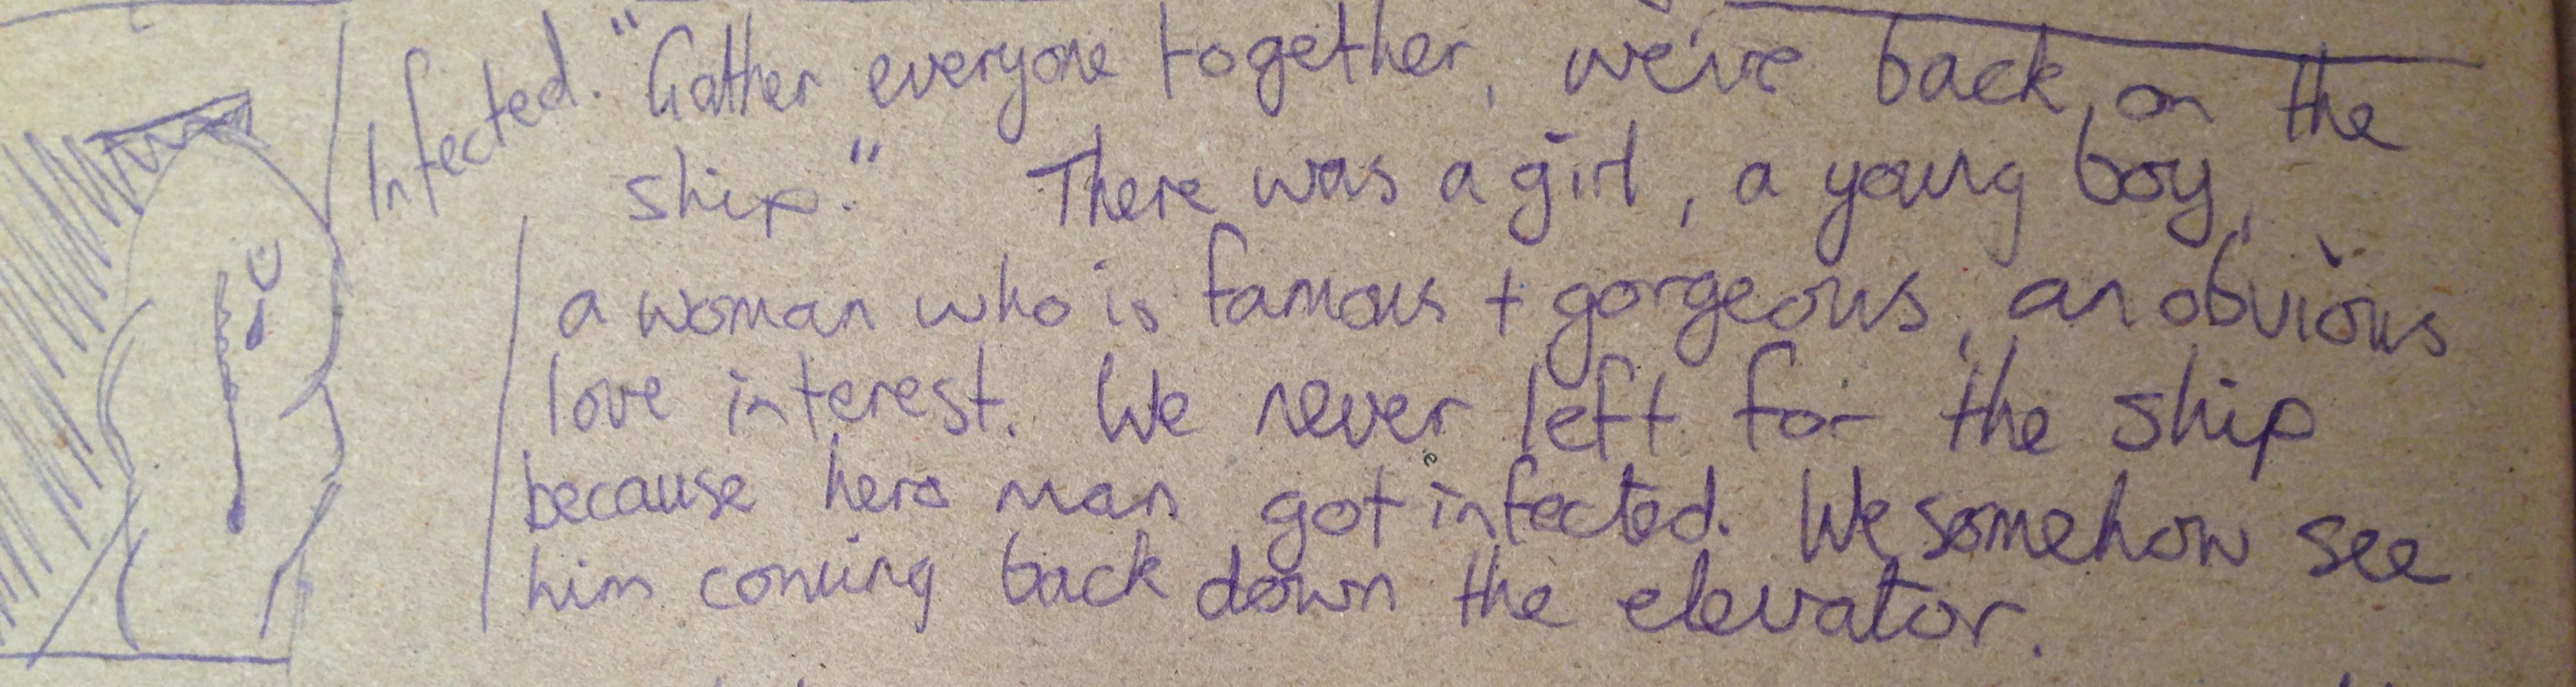 Infected. "Gather everyone together, we've back on the
ship." There was a girl, a young boy,
a woman who is famous + gorgeous, an obvious
love interest. We never left for the ship
because hero man got infected. We somehow see
him coming back down the elevator.